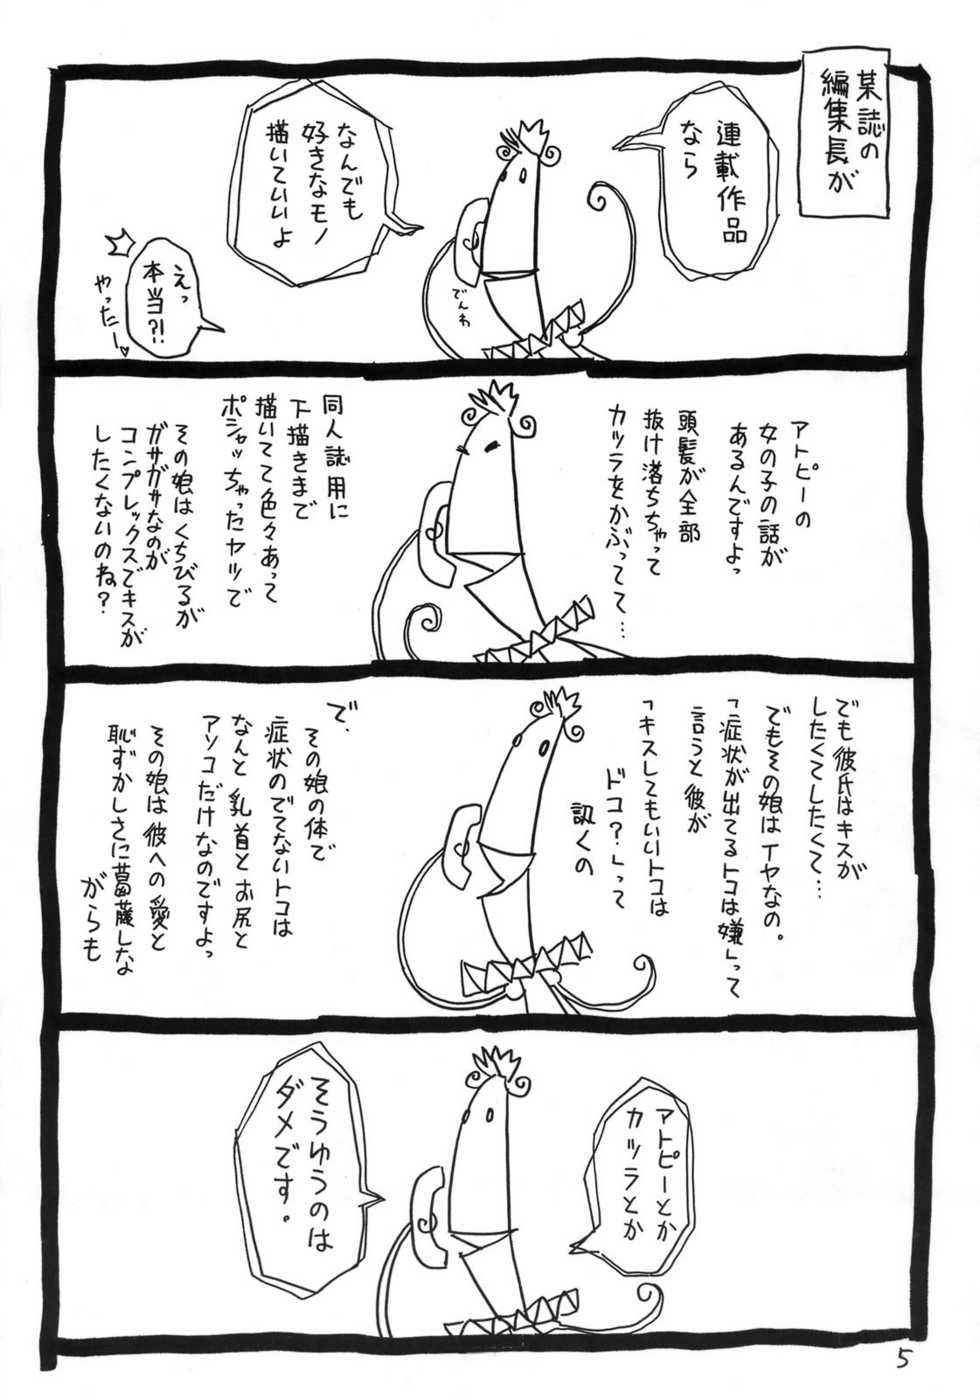 某誌の
編集長が
連載作品
なら
なんでも
好きなモノ
描いていいよ
でんわ
えっ
本当?!
やったー♥
アトピーの
女の子の話が
あるんですよっ
頭髪が全部
抜け落ちちゃって
カツラをかぶってて…
同人誌用に
下描きまで
描いてて色々あって
ポシャッちゃったヤツで
その娘はくちびるが
ガサガサなのが
コンプレックスでキスが
したくないのね?
でも彼氏はキスが
したくてしたくて…
でもその娘はイヤなの。
「症状が出てるトコは嫌」って
言うと彼が
「キスしてもいいトコは
ドコ?」って
訊くの
で、
その娘の体で
症状のでてないトコは
なんと乳首とお尻と
アソコだけなのですよっ
その娘は彼への愛と
恥ずかしさに葛藤しな
がらも
アトピーとか
カツラとか
そうゆうのは
ダメです。
5